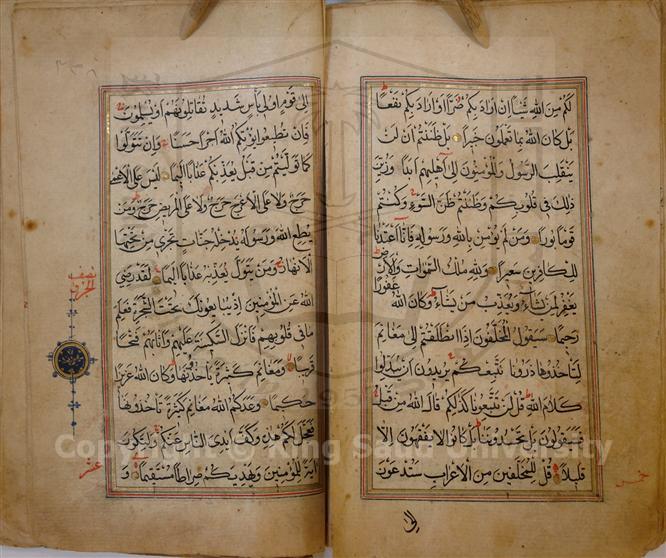 لَكُمْ مِنَ اللّٰهِ شَيْئًا اِنْ اَرَادَ بِكُمْ ضَرًّا اَوْ اَرَادَ بِكُمْ نَفْعًا
بَلْ كَانَ اللّٰهُ بِمَا تَعْمَلُونَ خَبِيرًا بَلْ ظَنَنْتُمْ اَنْ لَنْ
يَنْقَلِبَ الرَّسُولُ وَالْمُؤْمِنُونَ اِلٰى اَهْلِيهِمْ اَبَدًا وَزُيِّنَ
ذٰلِكَ فِى قُلُوبِكُمْ وَظَنَنْتُمْ ظَنَّ السَّوْءِ وَكُنْتُمْ
قَوْمًا بُورًا وَمَنْ لَمْ يُؤْمِنْ بِاللّٰهِ وَرَسُولِهِ فَاِنَّا اَعْتَدْنَا
لِلْكَافِرِينَ سَعِيرًا وَلِلّٰهِ مُلْكُ السَّمٰوَاتِ وَالْاَرْضِ
يَغْفِرُ لِمَنْ يَشَاءُ وَيُعَذِّبُ مَنْ يَشَاءُ وَكَانَ اللّٰهُ غَفُورًا
رَحِيمًا سَيَقُولُ الْمُخَلَّفُونَ اِذَا انْطَلَقْتُمْ اِلٰى مَغَانِمَ
لِتَأْخُذُوهَا ذَرُونَا نَتَّبِعْكُمْ يُرِيدُونَ اَنْ يُبَدِّلُوا
كَلَامَ اللّٰهِ قُلْ لَنْ تَتَّبِعُونَا كَذٰلِكُمْ قَالَ اللّٰهُ مِنْ قَبْلُ
فَسَيَقُولُونَ بَلْ تَحْسُدُونَنَا بَلْ كَانُوا لَا يَفْقَهُونَ اِلَّا
قَلِيلًا قُلْ لِلْمُخَلَّفِينَ مِنَ الْاَعْرَابِ سَتُدْعَوْنَ
اِلٰى
خمس
اِلٰى قَوْمٍ اُولِى بَأْسٍ شَدِيدٍ تُقَاتِلُونَهُمْ اَوْ يُسْلِمُونَ
فَاِنْ تُطِيعُوا يُؤْتِكُمُ اللّٰهُ اَجْرًا حَسَنًا وَاِنْ تَتَوَلَّوْا
كَمَا تَوَلَّيْتُمْ مِنْ قَبْلُ يُعَذِّبْكُمْ عَذَابًا اَلِيمًا لَيْسَ عَلَى الْاَعْمٰى
حَرَجٌ وَلَا عَلَى الْاَعْرَجِ حَرَجٌ وَلَا عَلَى الْمَرِيضِ حَرَجٌ وَمَنْ
يُطِعِ اللّٰهَ وَرَسُولَهُ يُدْخِلْهُ جَنَّاتٍ تَجْرِى مِنْ تَحْتِهَا
الْاَنْهَارُ وَمَنْ يَتَوَلَّ يُعَذِّبْهُ عَذَابًا اَلِيمًا لَقَدْ رَضِىَ
اللّٰهُ عَنِ الْمُؤْمِنِينَ اِذْ يُبَايِعُونَكَ تَحْتَ الشَّجَرَةِ فَعَلِمَ
مَا فِى قُلُوبِهِمْ فَاَنْزَلَ السَّكِينَةَ عَلَيْهِمْ وَاَثَابَهُمْ فَتْحًا
قَرِيبًا وَمَغَانِمَ كَثِيرَةً يَأْخُذُونَهَا وَكَانَ اللّٰهُ عَزِيزًا
حَكِيمًا وَعَدَكُمُ اللّٰهُ مَغَانِمَ كَثِيرَةً تَأْخُذُونَهَا
فَعَجَّلَ لَكُمْ هٰذِهِ وَكَفَّ اَيْدِىَ النَّاسِ عَنْكُمْ وَلِتَكُونَ
اٰيَةً لِلْمُؤْمِنِينَ وَيَهْدِيَكُمْ صِرَاطًا مُسْتَقِيمًا وَ
نصف
الحزب
عشر
Copyright © King Saud University